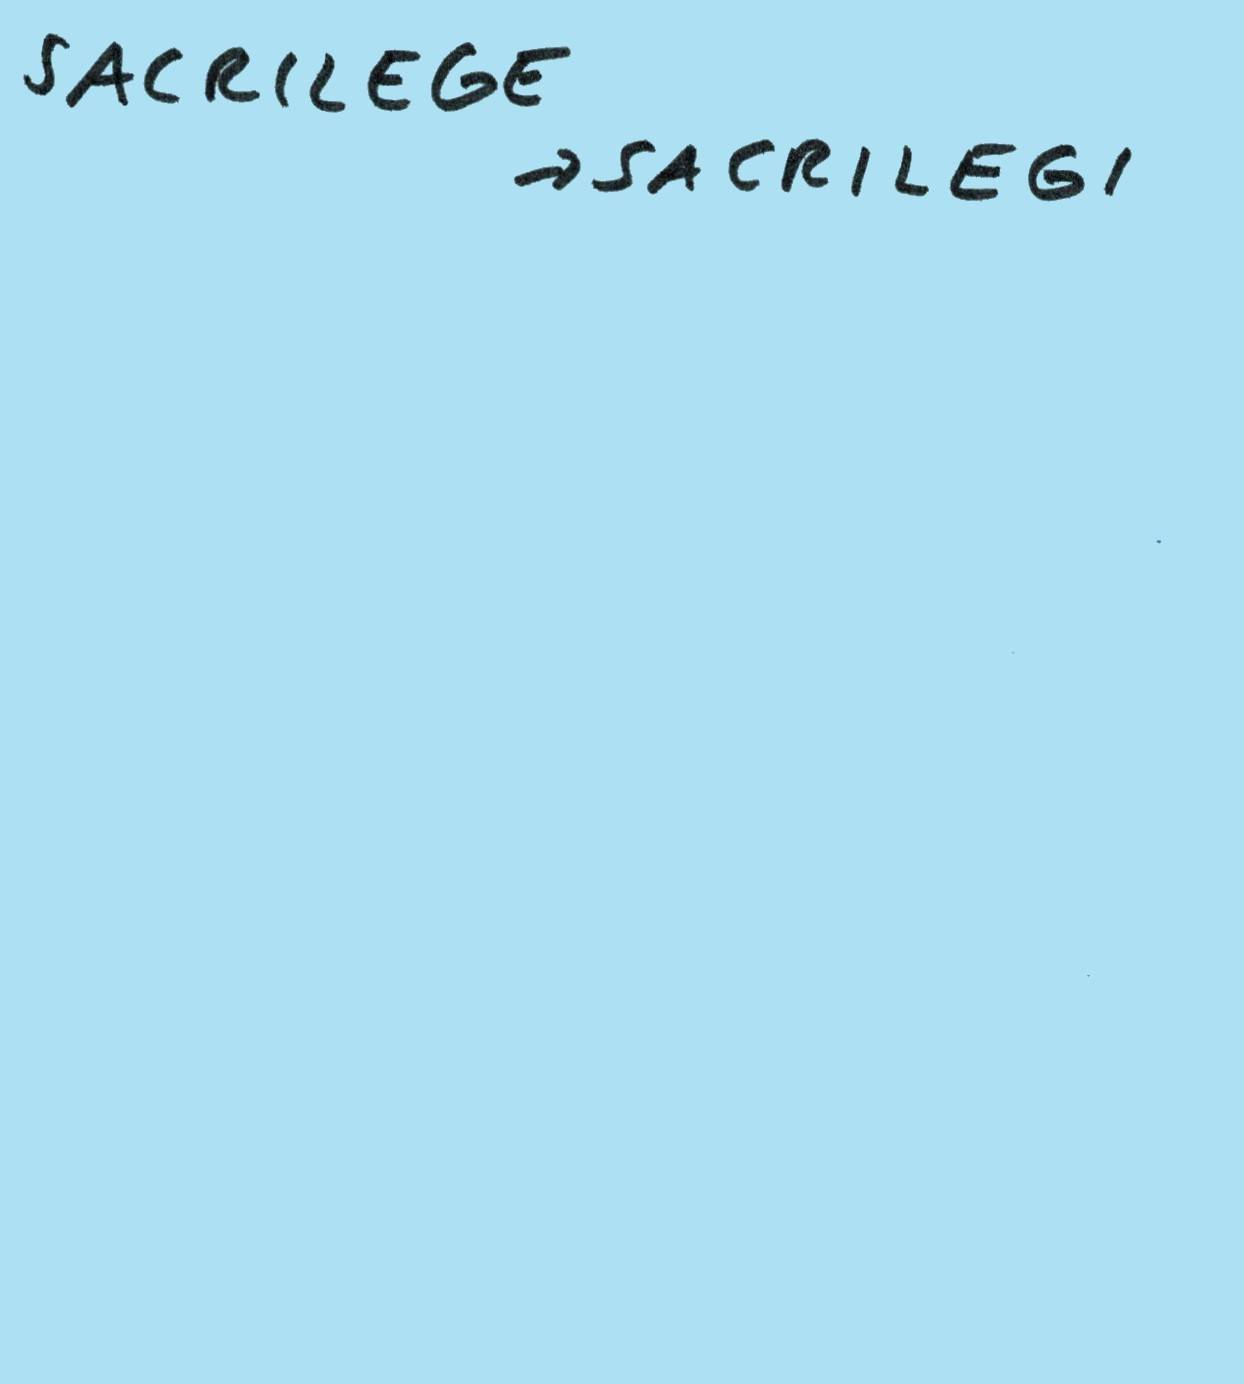 SACRILEGE
→SACRILEGI